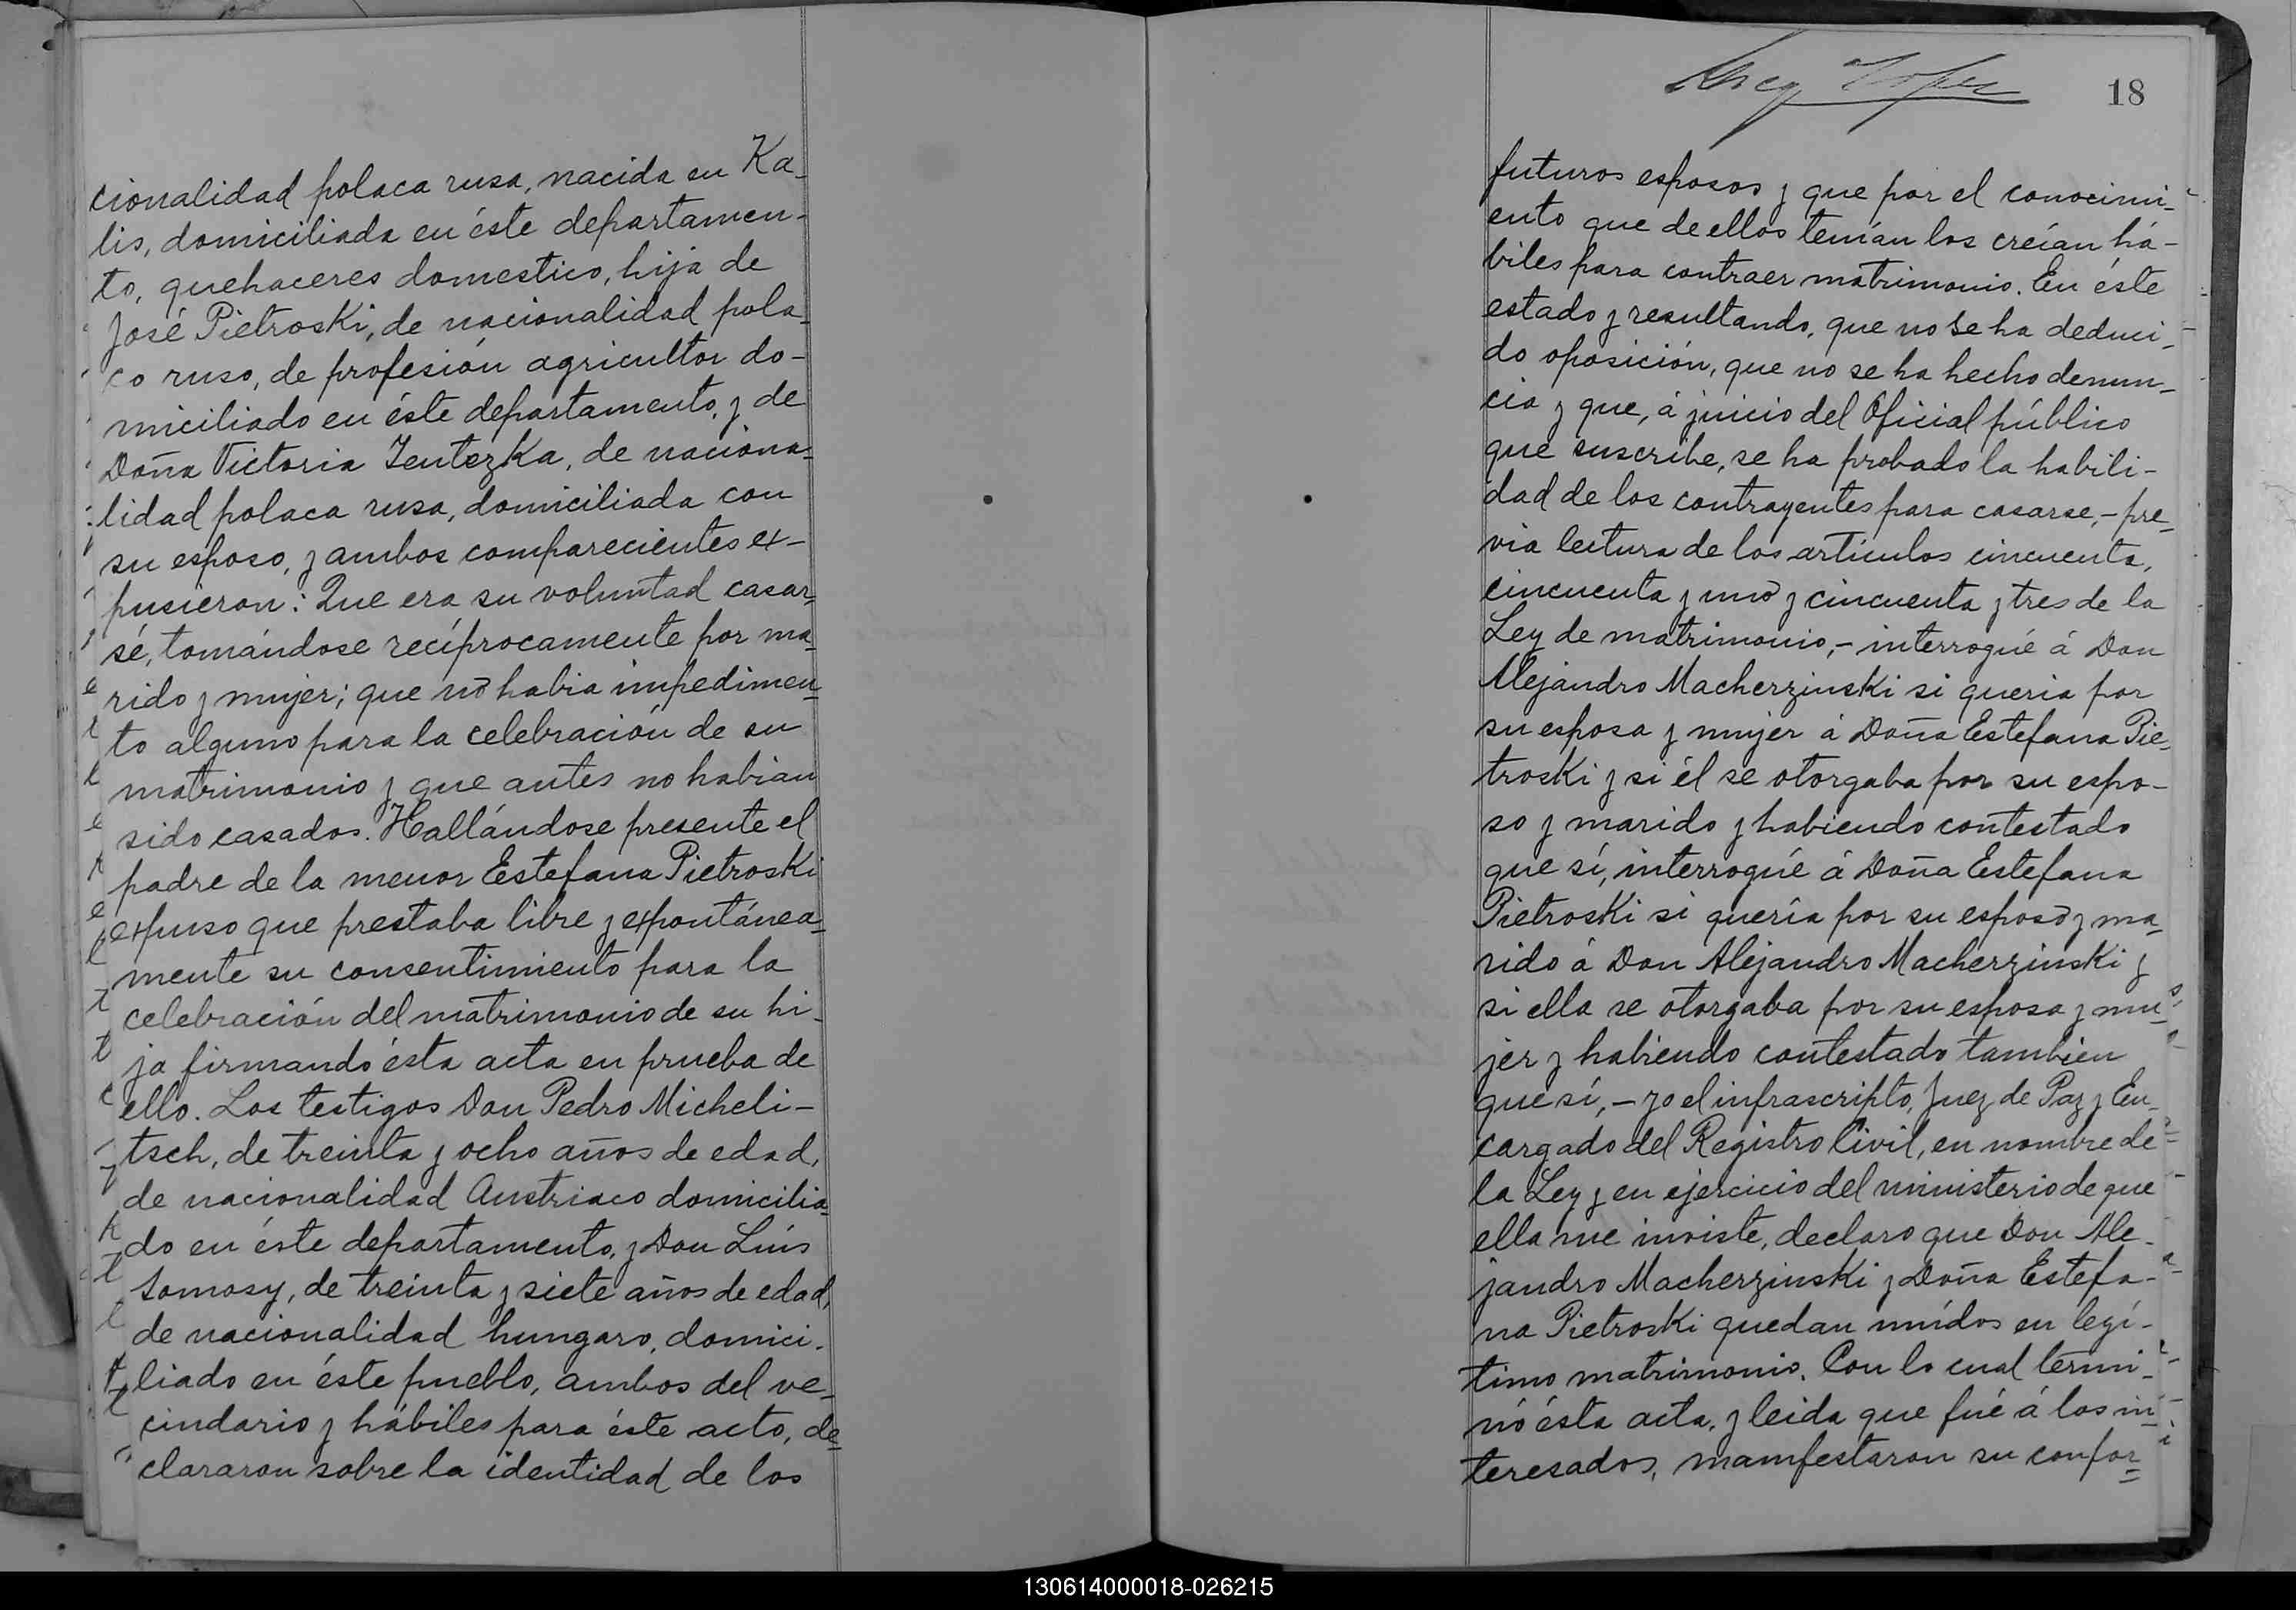 cionalidad polaca rusa, nacida en Ka-
lis, domiciliada en éste departamen-
to, quehaceres domestico, hija de
José Pietroski, de nacionalidad pola-
co ruso, de profesión agricultor do-
miciliado en éste departamento, y de
Doña Victoria Zentezka, de naciona=
lidad polaca rusa, domiciliada con
su esposo, y ambos comparecientes ex-
pusieron: Que era su voluntad casar=
sé, tomándose recíprocamente por ma=
rido y mujer; que no habia impedimen=
to alguno para la celebración de su
matrimonio y que antes no habian
sido casados. Hallándose presente el
padre de la menor Estefana Pietroski
expuso que prestaba libre y expontánea=
mente su consentimiento para la
celebración del matrimonio de su hi-
ja firmando ésta acta en prueba de
ello. Los testigos Don Pedro Micheli-
tsch, de treinta y ocho años de edad,
de nacionalidad Austriaco domicilia=
do en éste departamento, y Don Luis
Somosy, de treinta y siete años de edad,
de nacionalidad hungaro, domici-
liado en éste pueblo, ambos del ve-
cindario y hábiles para éste acto, de=
clararon sobre la identidad de los
18
futuros esposos y que por el conocimi-
ento que de ellos tenían los creían há-
biles para contraer matrimonio. En éste
estado y resultando, que no se ha deduci-
do oposición, que no se ha hecho denun-
cia y que, á juicio del Oficial público
que suscribe, se ha probado la habili-
dad de los contrayentes para casarse,- pre-
via lectura de los artículos cincuenta,
cincuenta y uno y cincuenta y tres de la
Ley de matrimonio,- interrogué á Don
Alejandro Macherzinski si queria por
su esposa y mujer á Doña Estefana Pie-
troski y si él se otorgaba por su espo-
so y marido y habiendo contestado
que sí, interrogué á Doña Estefana
Pietroski si quería por su esposo y ma-
rido á Don Alejandro Macherzinski y
si ella se otorgaba por su esposa y mu-
jer y habiendo contestado tambien
que sí,- yo el infrascripto, Juez de Paz y En-
cargado del Registro Civil, en nombre de
la Ley y en ejercicio del ministerio de que
ella me inviste, declaro que Don Ale-
jandro Macherzinski y Doña Estefa-
na Pietroski quedan unídos en legí-
timo matrimonio. Con lo cual termi-
nó ésta acta, y leida que fué á los in-
teresados, manifestaron su confor=
130614000018-026215